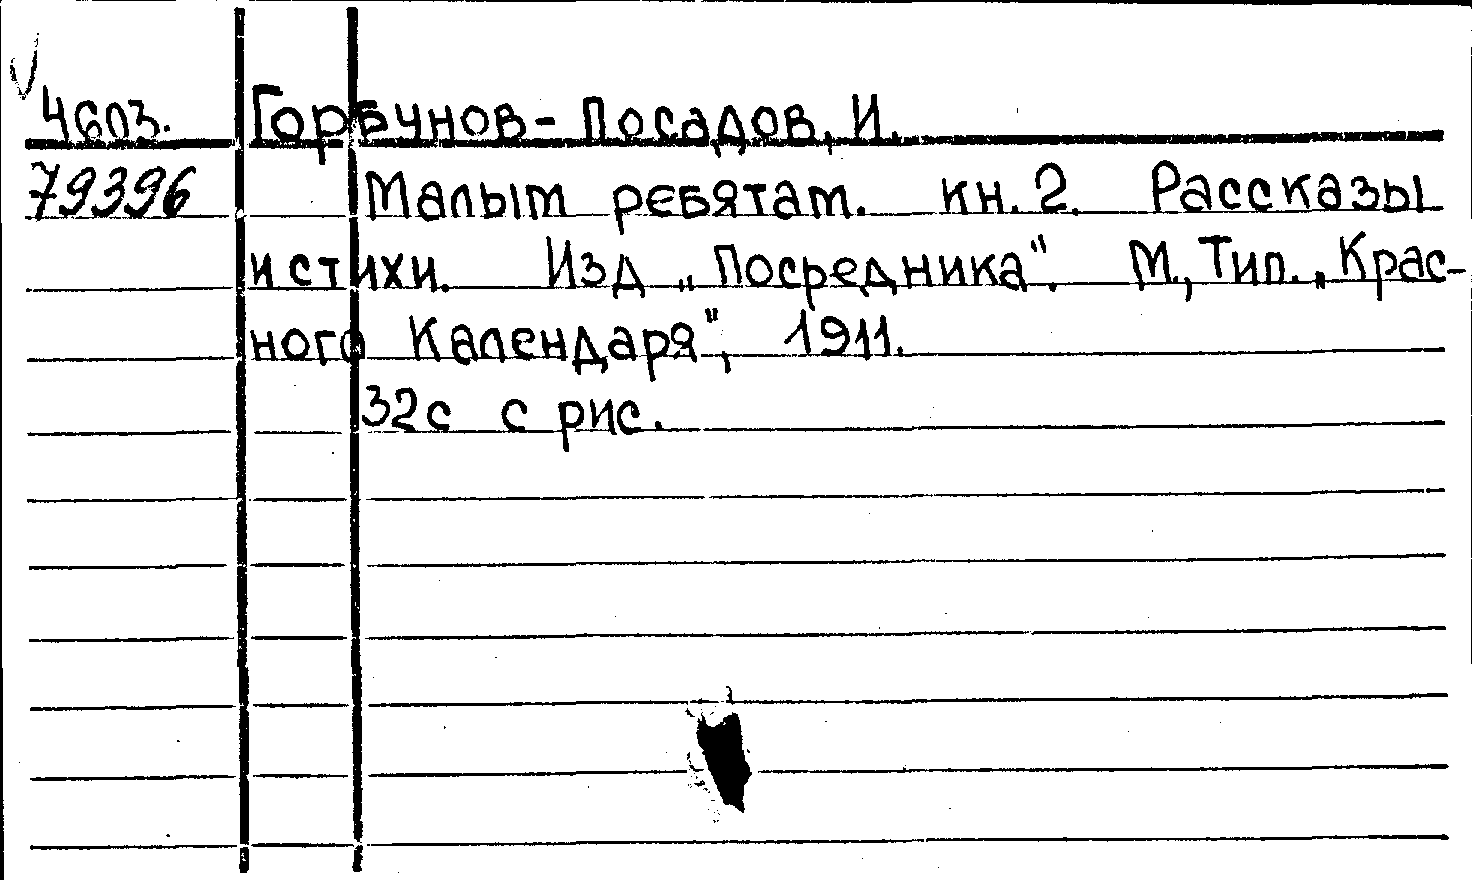 Ч603. Горбунов-Посадов, И.
79396 Малым ребятам. кн. 2. Рассказы
и стихи. Изд „Посредника". М., Тип. „Крас-
ного Календаря", 1911.
32с с рис.